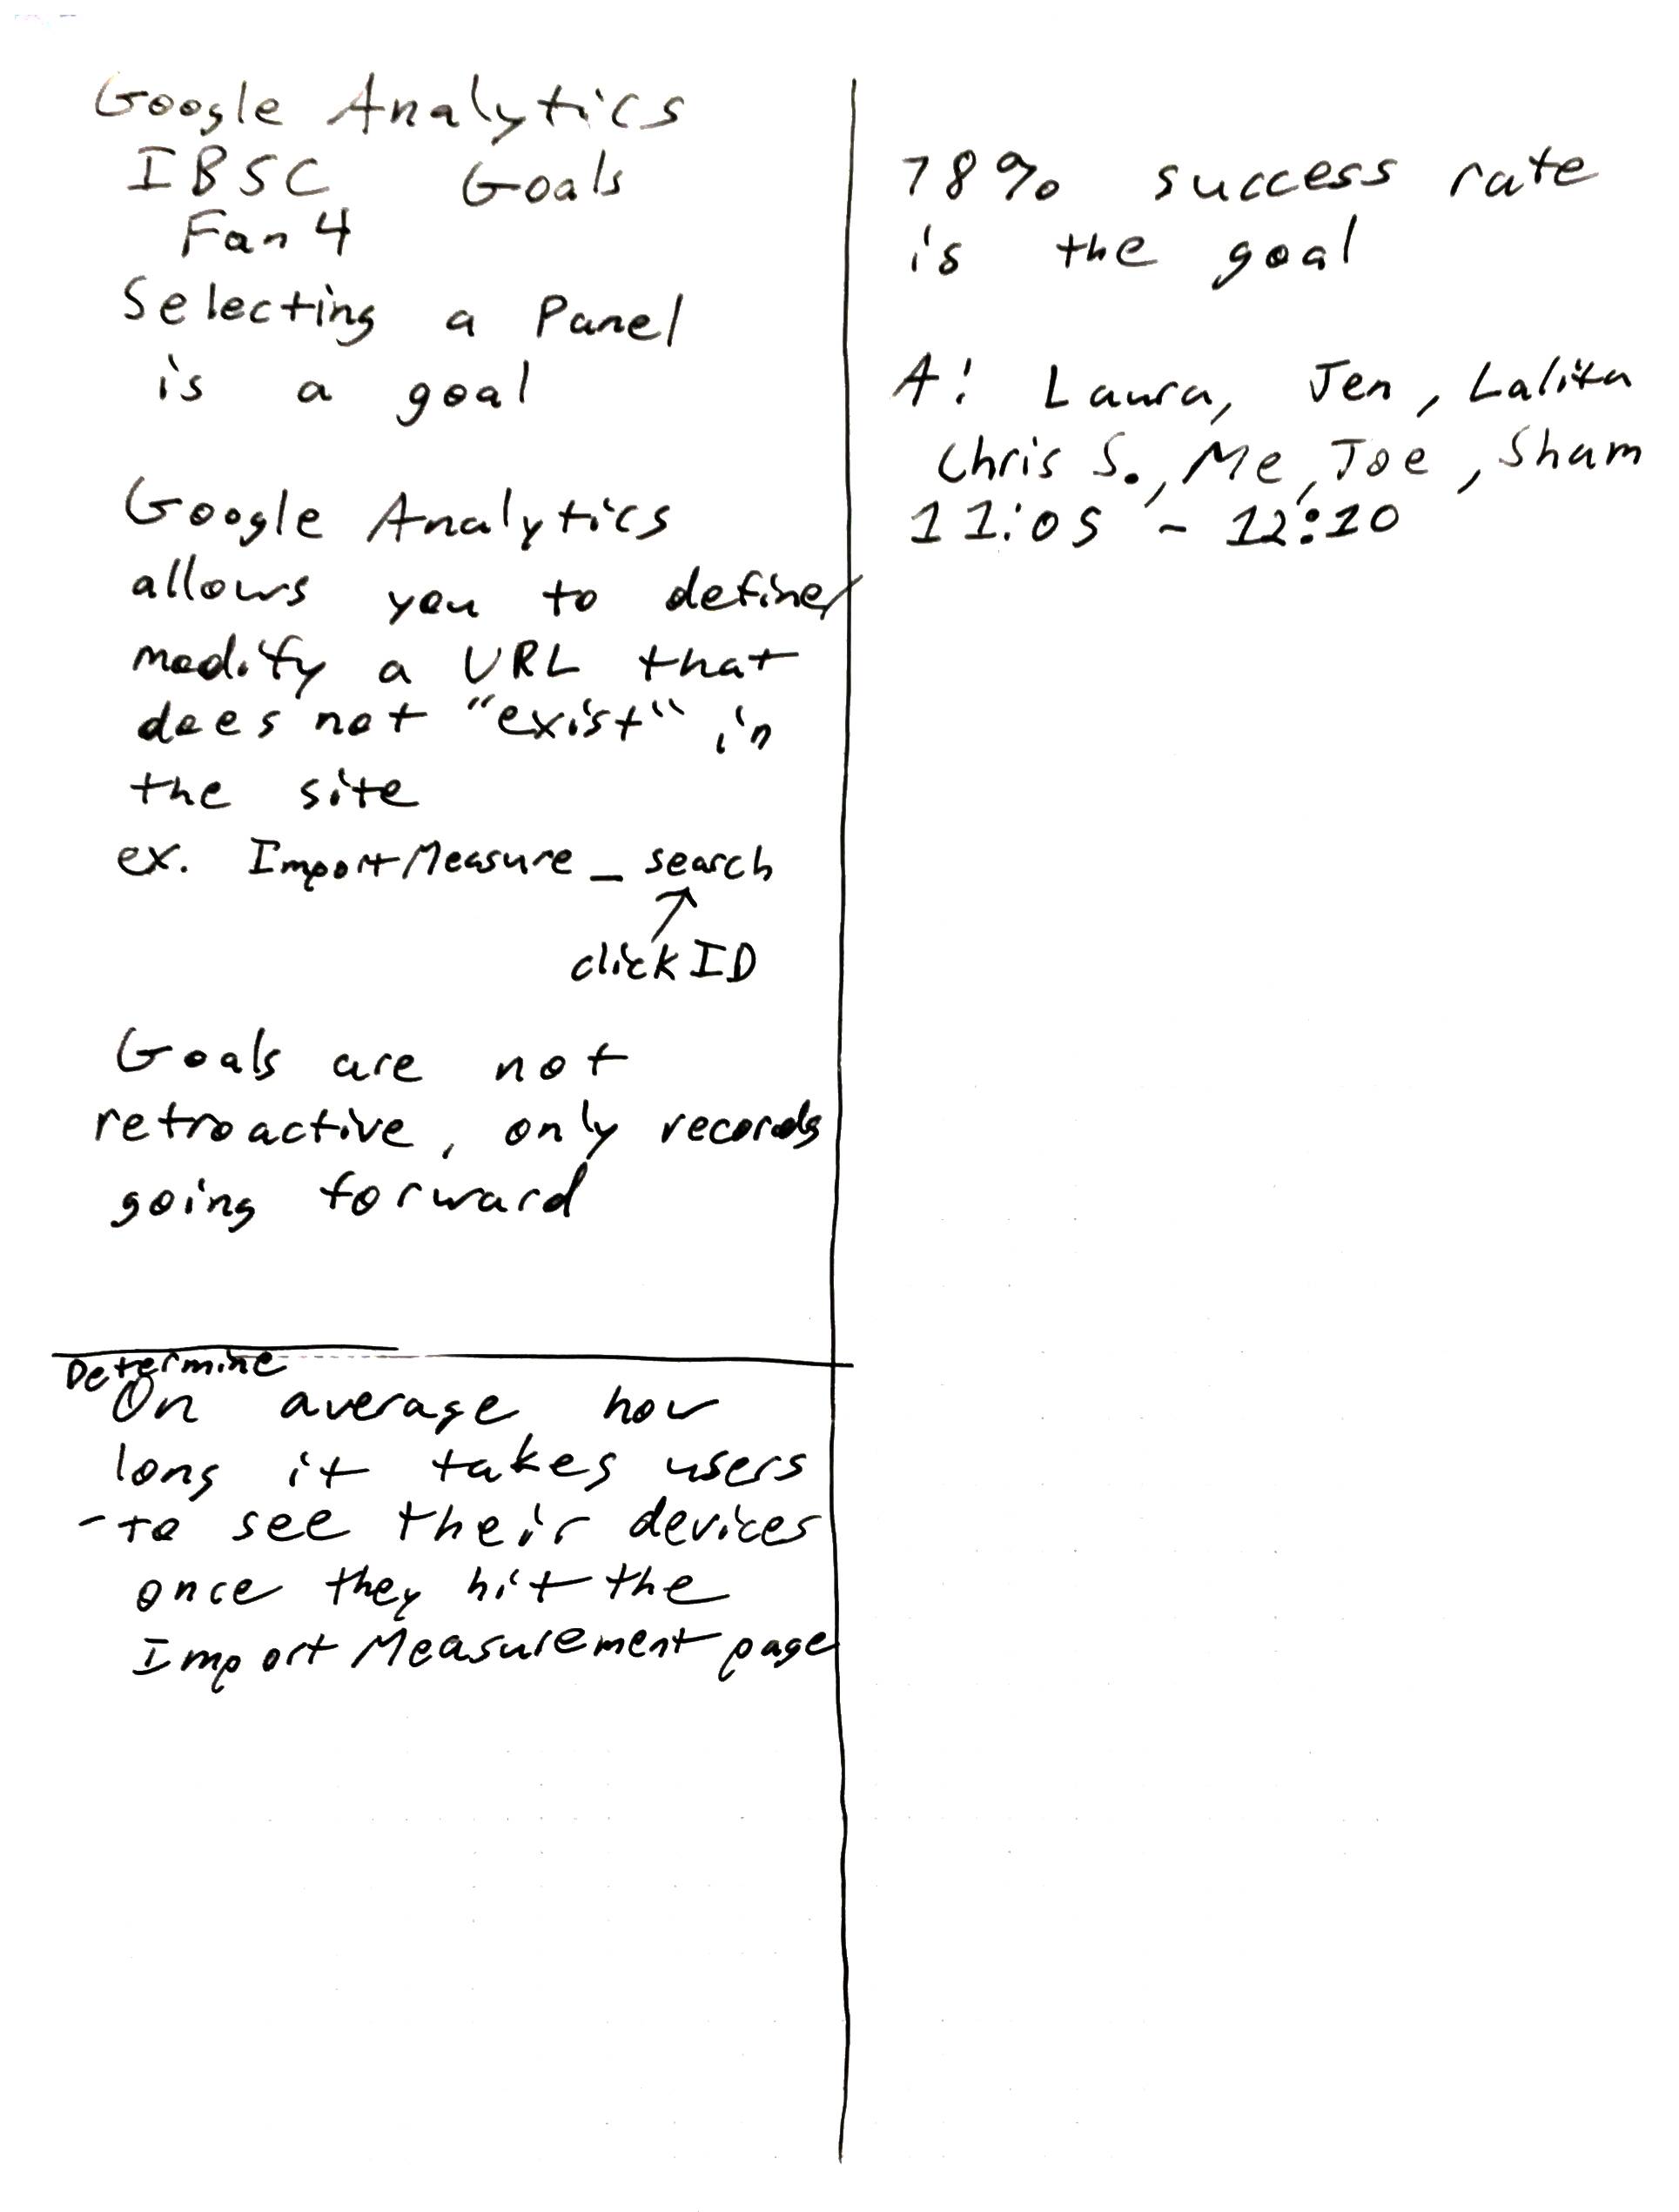 Google Analytics
IBSC Goals
Fan 4
Selecting a Panel
is a goal
Google Analytics
allows you to define/
modify a URL that
does not "exist" in
the site
ex. ImportMeasure_search
clickID
Goals are not
retroactive, only records
going forward
Determine
On average how
long it takes users
- to see their devices
once they hit the
Import Measurement page
78% success rate
is the goal
A: Laura, Jen, Lalita
Chris S., Me, Joe, Sham
11:05 - 12:10